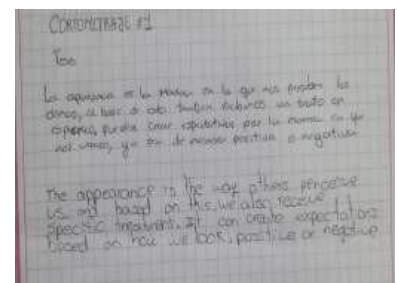 CORTOMETRAJE #1
La apariencia es la manera en la que nos perciben los
demás, en base a esto también recibimos un trato en
específico, puede crear expectativas por la manera en que
nos vemos, ya sea de manera positiva o negativa
The appearance is the way others perceive
us and based on this, we also receive
specific treatment. It can create expectations
based on how we look, positive or negative